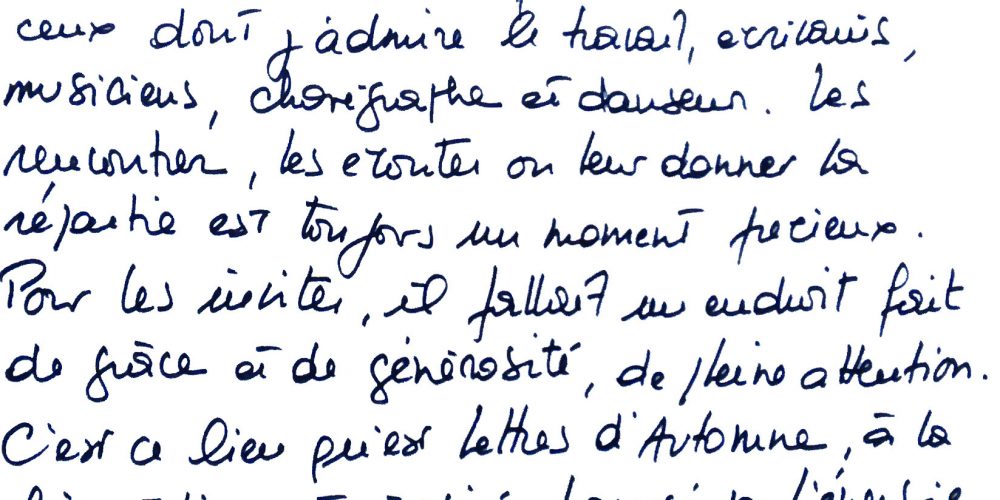 ceux dont j'admire le travail, écrivains,
musiciens, chorégraphe et danseur. Les
rencontrer, les écouter ou leur donner la
répartie est toujours un moment précieux.
Pour les inviter, il fallait un endroit fait
de grâce et de générosité, de pleine attention.
C'est ce lieu qu'est Lettres d'Automne, à la